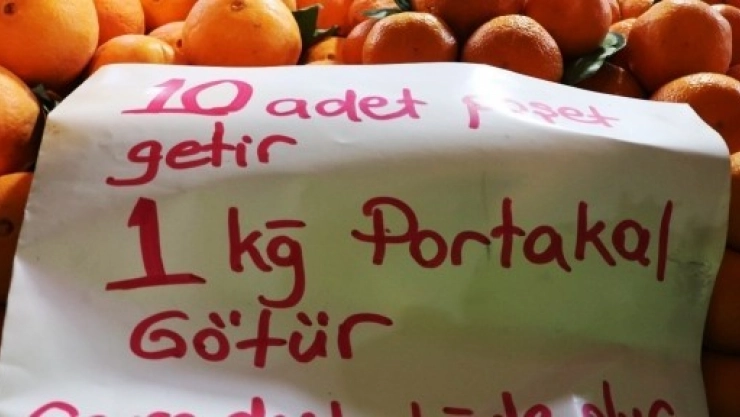 10 adet poşet
getir
1 kg Portakal
Götür